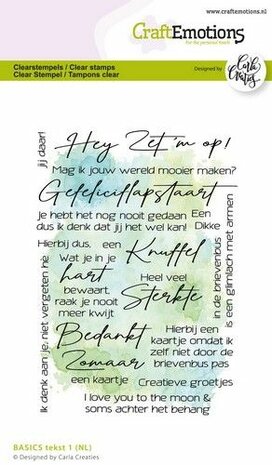 www.craftemotions.nl
CraftEmotions
for the personal touch!
Clearstempels / Clear stamps
Clear Stempel / Tampons clear
Designed by
Carla Creaties
jij daar!
Hey Zet 'm op!
Mag ik jouw wereld mooier maken?
Gefeliciflapstaart
Je hebt het nog nooit gedaan
dus ik denk dat jij het wel kan!
Een
Dikke
Hierbij dus, een
Knuffel
Wat je in je
hart
bewaart,
raak je nooit
meer kwijt
Heel veel
Sterkte
in de brievenbus
is een glimlach met armen
Ik denk aan je, niet vergeten hè
Bedankt
Zomaar
een kaartje
Hierbij een
kaartje omdat ik
zelf niet door de
brievenbus pas
Creatieve groetjes
I love you to the moon &
soms achter het behang
BASICS tekst 1 (NL)
© Designed by Carla Creaties